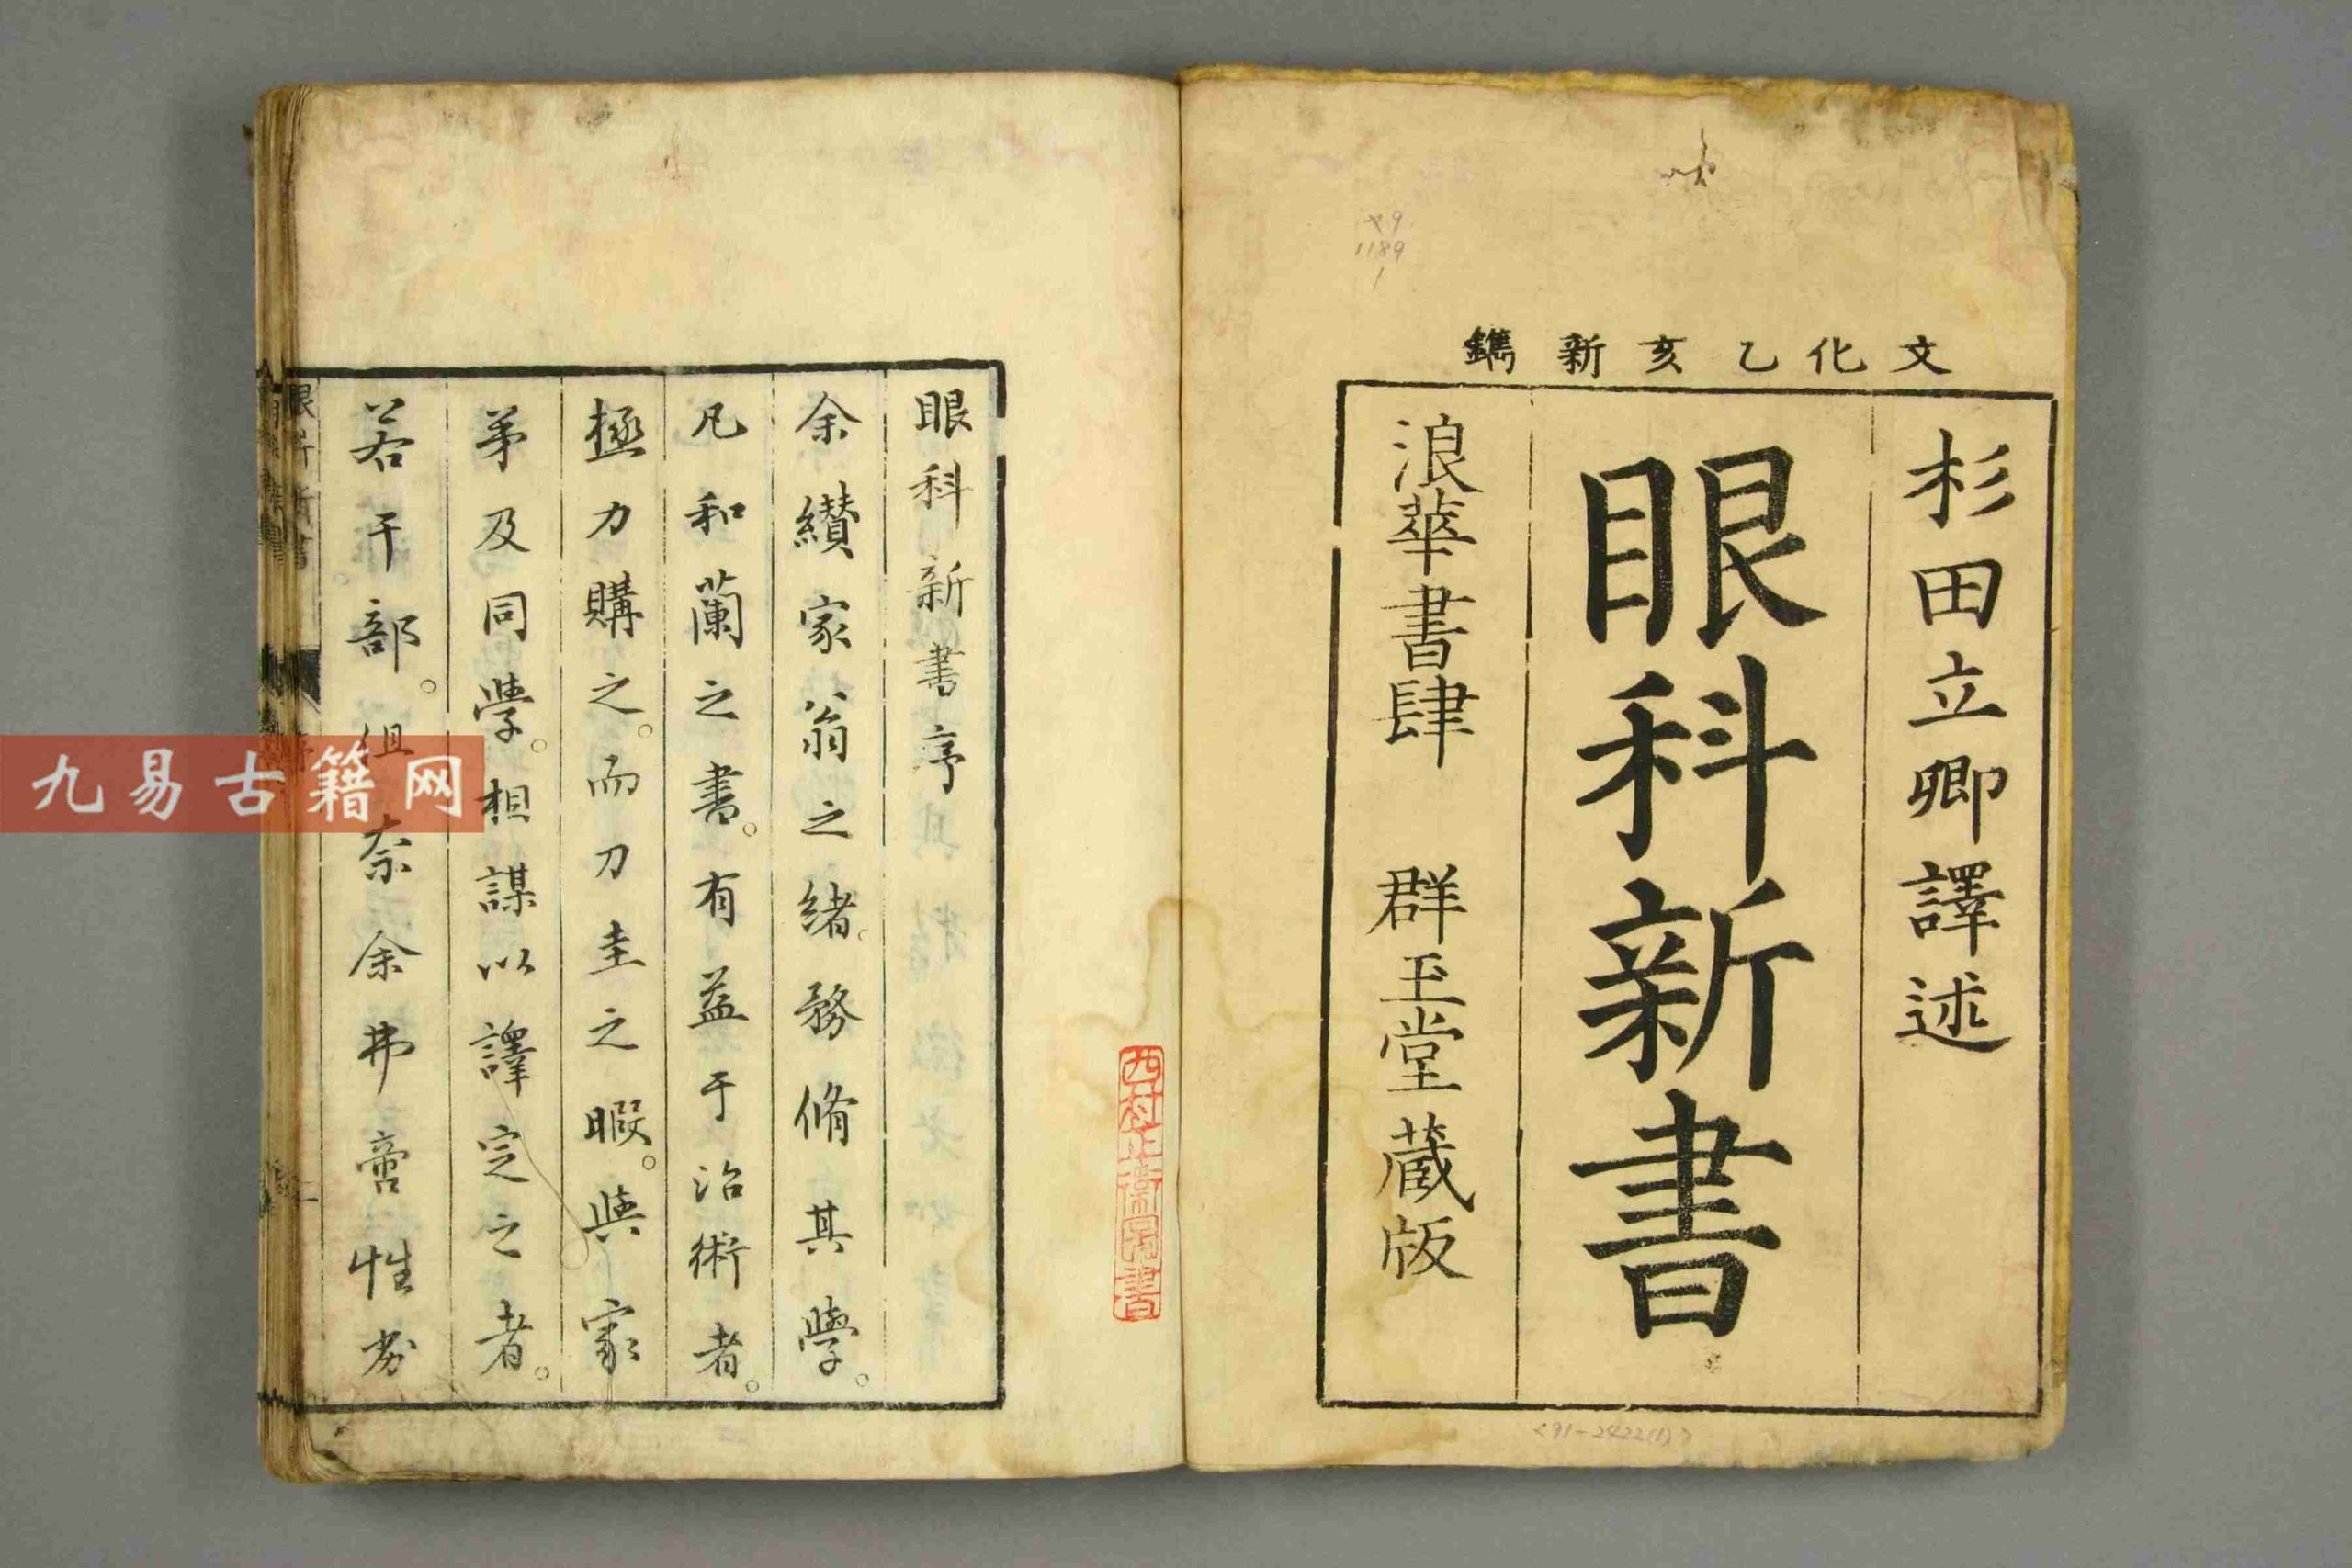 文化乙亥新鐫
杉田立卿譯述
眼科新書
浪華書肆 群玉堂藏版
眼科新書序
余纘家翁之緒。務脩其學。
凡和蘭之書。有益于治術者。
極力購之。而刀圭之暇。與家
弟及同學。相謀以譯定之者。
若干部。但奈余弗啻性劣
眼科新書
九易古籍网
79
1189
1
<91-2422(1)>